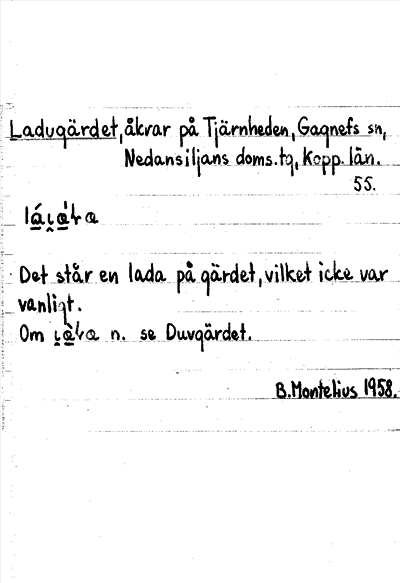 Ladugärdet, åkrar på Tjärnheden, Gagnefs sn,
Nedansiljans doms.tg, Kopp. län.
55.
Det står en lada på gärdet, vilket icke var
vanligt.
Om n. se Duvgärdet.
B. Montelius 1958.